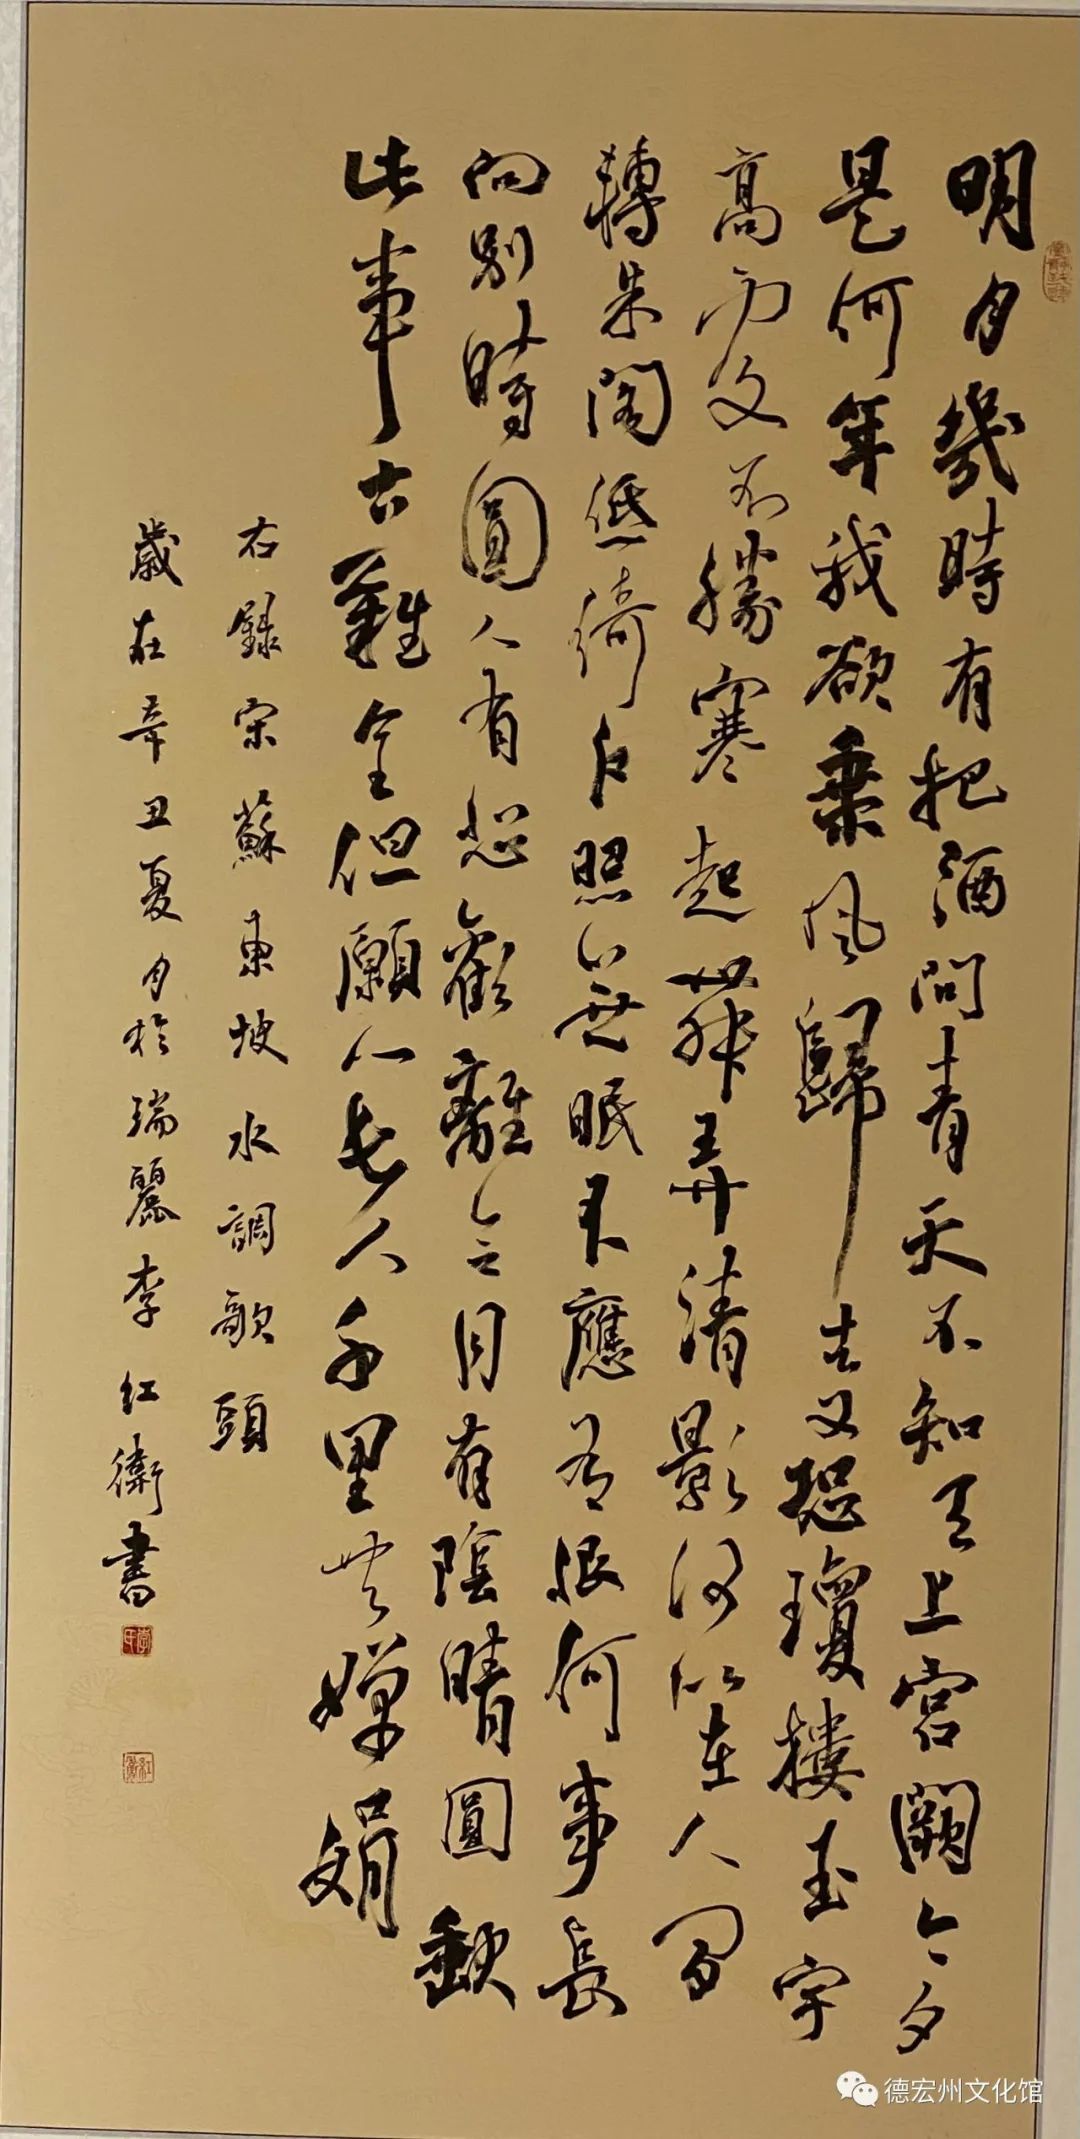 明月幾時有把酒問青天不知天上宮闕今夕
是何年我欲乘風歸去又恐瓊樓玉宇
高處不勝寒起舞弄清影何似在人間
轉朱閣低綺戶照無眠不應有恨何事長
向別時圓人有悲歡離合月有陰晴圓缺
此事古難全但願人長久千里共嬋娟
右錄宋蘇東坡水調歌頭
歲在辛丑夏月於瑞麗李红衛書
德宏州文化馆